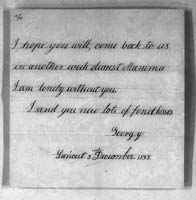 I hope you will, come back to us
in another week dearest Mamma
I am lonely without you.
I send you now lots of fond kisses
Georgy.
5 December 1895